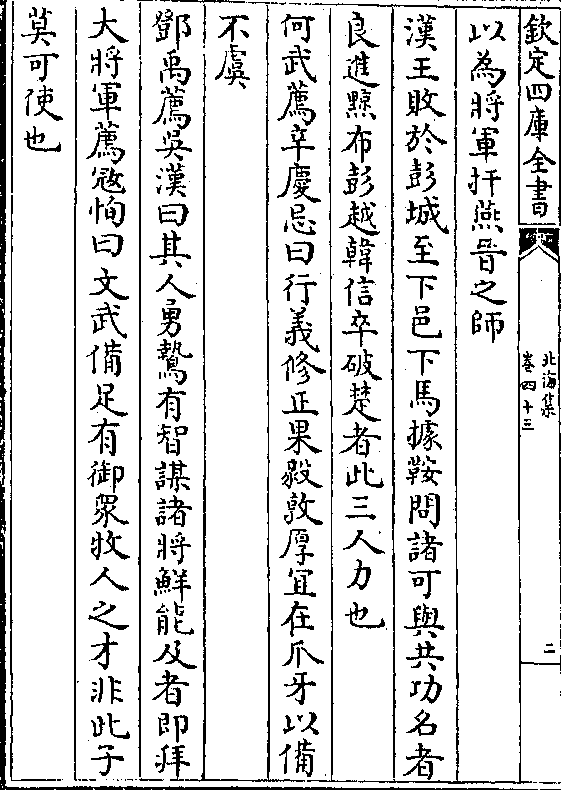 欽定四庫全書
北海集
卷四十三
二
以為將軍扞燕晉之師
漢王敗於彭城至下邑下馬據鞍問諸可與共功名者
良進黥布彭越韓信卒破楚者此三人力也
何武薦辛慶忌曰行義修正果毅敦厚宜在爪牙以備
不虞
鄧禹薦吳漢曰其人勇鷙有智謀諸將鮮能及者即拜
大將軍薦寇恂曰文武備足有御眾牧人之才非此子
莫可使也